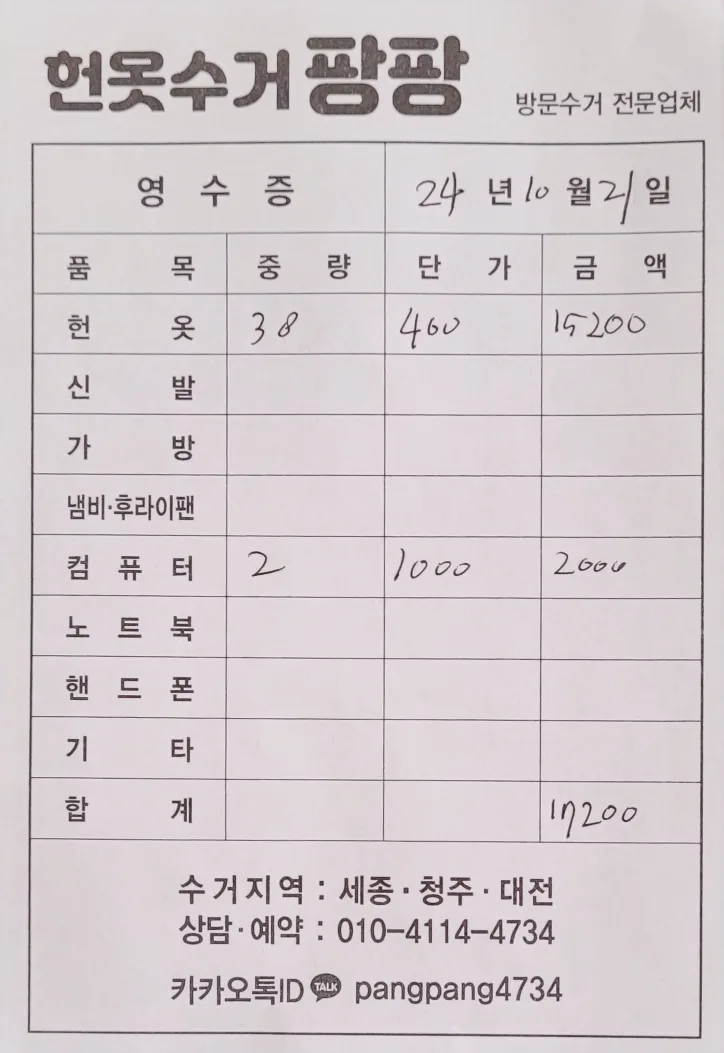 헌옷수거 팡팡 방문수거 전문업체
영 수 증 24 년 10 월 21 일
품 목 중 량 단 가 금 액
헌 옷 38 400 15200
신 발
가 방
냄비·후라이팬
컴 퓨 터 2 1000 2000
노 트 북
핸 드 폰
기 타
합 계 17200
수거지역 : 세종·청주·대전
상담·예약 : 010-4114-4734
카카오톡ID TALK pangpang4734